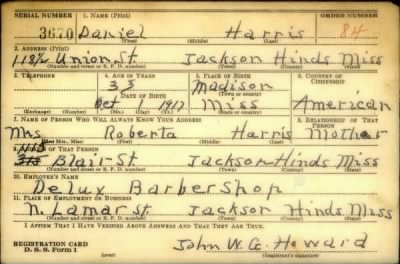 SERIAL NUMBER 1. NAME (Print) ORDER NUMBER
3670 Daniel Harris 84
(First) (Middle) (Last)
2. ADDRESS (Print)
118½ Union St. Jackson Hinds Miss
(Number and street or R. F. D. number) (Town) (County) (State)
3. TELEPHONE 4. AGE IN YEARS 5. PLACE OF BIRTH 6. COUNTRY OF CITIZENSHIP
33 Madison
DATE OF BIRTH (Town or county)
Oct 1 1917 Miss American
(Exchange) (Number) (Mo.) (Day) (Yr.) (State or country)
7. NAME OF PERSON WHO WILL ALWAYS KNOW YOUR ADDRESS 8. RELATIONSHIP OF THAT PERSON
Mrs Roberta Harris Mother
(Mr., Mrs., Miss) (First) (Middle) (Last)
9. ADDRESS OF THAT PERSON
Blair St. Jackson Hinds Miss
(Number and street or R. F. D. number) (Town) (County) (State)
10. EMPLOYER'S NAME
Delux Barber Shop
11. PLACE OF EMPLOYMENT OR BUSINESS
N. Lamar St. Jackson Hinds Miss
(Number and street or R. F. D. number) (Town) (County) (State)
I AFFIRM THAT I HAVE VERIFIED ABOVE ANSWERS AND THAT THEY ARE TRUE.
REGISTRATION CARD John W. G. Howard
D. S. S. Form 1 (over) (Registrant's signature)